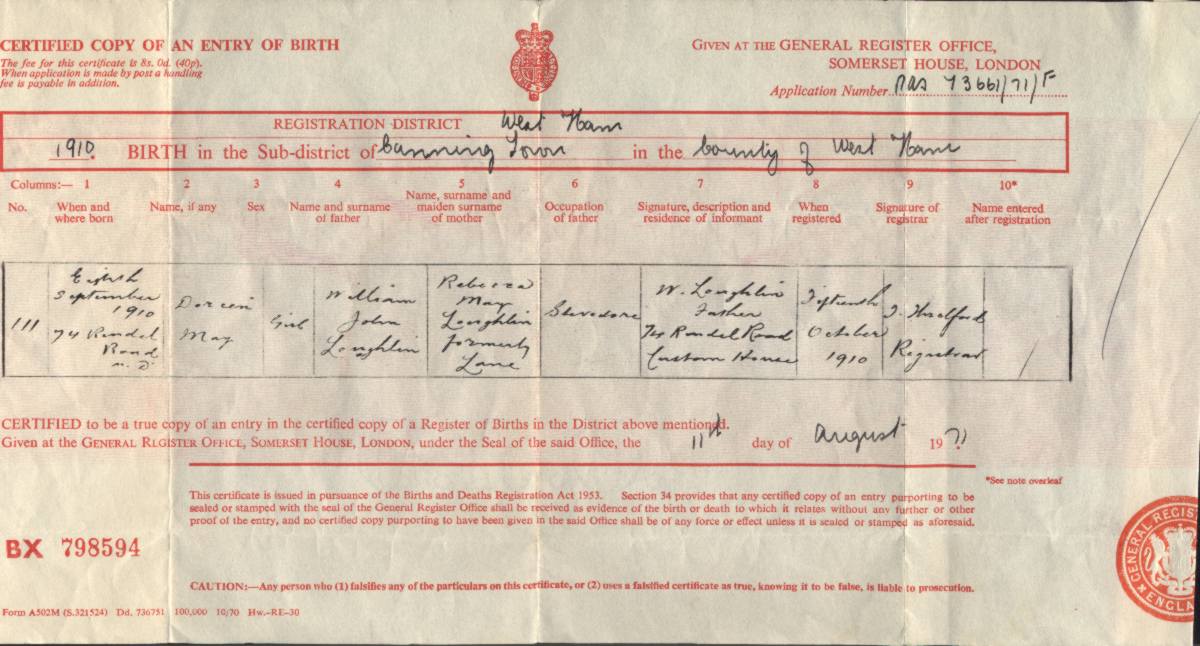 CERTIFIED COPY OF AN ENTRY OF BIRTH
The fee for this certificate is 8s. 0d. (40p).
When application is made by post a handling
fee is payable in addition.
GIVEN AT THE GENERAL REGISTER OFFICE,
SOMERSET HOUSE, LONDON
Application Number PAS 73661/71/F
REGISTRATION DISTRICT West Ham
1910. BIRTH in the Sub-district of Canning Town in the County of West Ham
Columns:— 1 2 3 4 5 6 7 8 9 10*
No. When and where born
Name, if any
Sex
Name and surname of father
Name, surname and maiden surname of mother
Occupation of father
Signature, description and residence of informant
When registered
Signature of registrar
Name entered after registration
111
Eighth
September
1910
74 Randel
Road
Doreen
May
Girl
William
John
Loughlin
Rebecca
May
Loughlin
formerly
Lane
Stevedore
W. Loughlin
Father
74 Randel Road
Custom House
Fifteenth
October
1910
Registrar
CERTIFIED to be a true copy of an entry in the certified copy of a Register of Births in the District above mentioned.
Given at the GENERAL REGISTER OFFICE, SOMERSET HOUSE, LONDON, under the Seal of the said Office, the 11th day of August 1971
*See note overleaf
This certificate is issued in pursuance of the Births and Deaths Registration Act 1953. Section 34 provides that any certified copy of an entry purporting to be
sealed or stamped with the seal of the General Register Office shall be received as evidence of the birth or death to which it relates without any further or other
proof of the entry, and no certified copy purporting to have been given in the said Office shall be of any force or effect unless it is sealed or stamped as aforesaid.
BX 798594
CAUTION:—Any person who (1) falsifies any of the particulars on this certificate, or (2) uses a falsified certificate as true, knowing it to be false, is liable to prosecution.
Form A502M (S.321524) Dd. 736751 100,000 10/70 Hw.-RE-30
GENERAL REGIS
ENGL